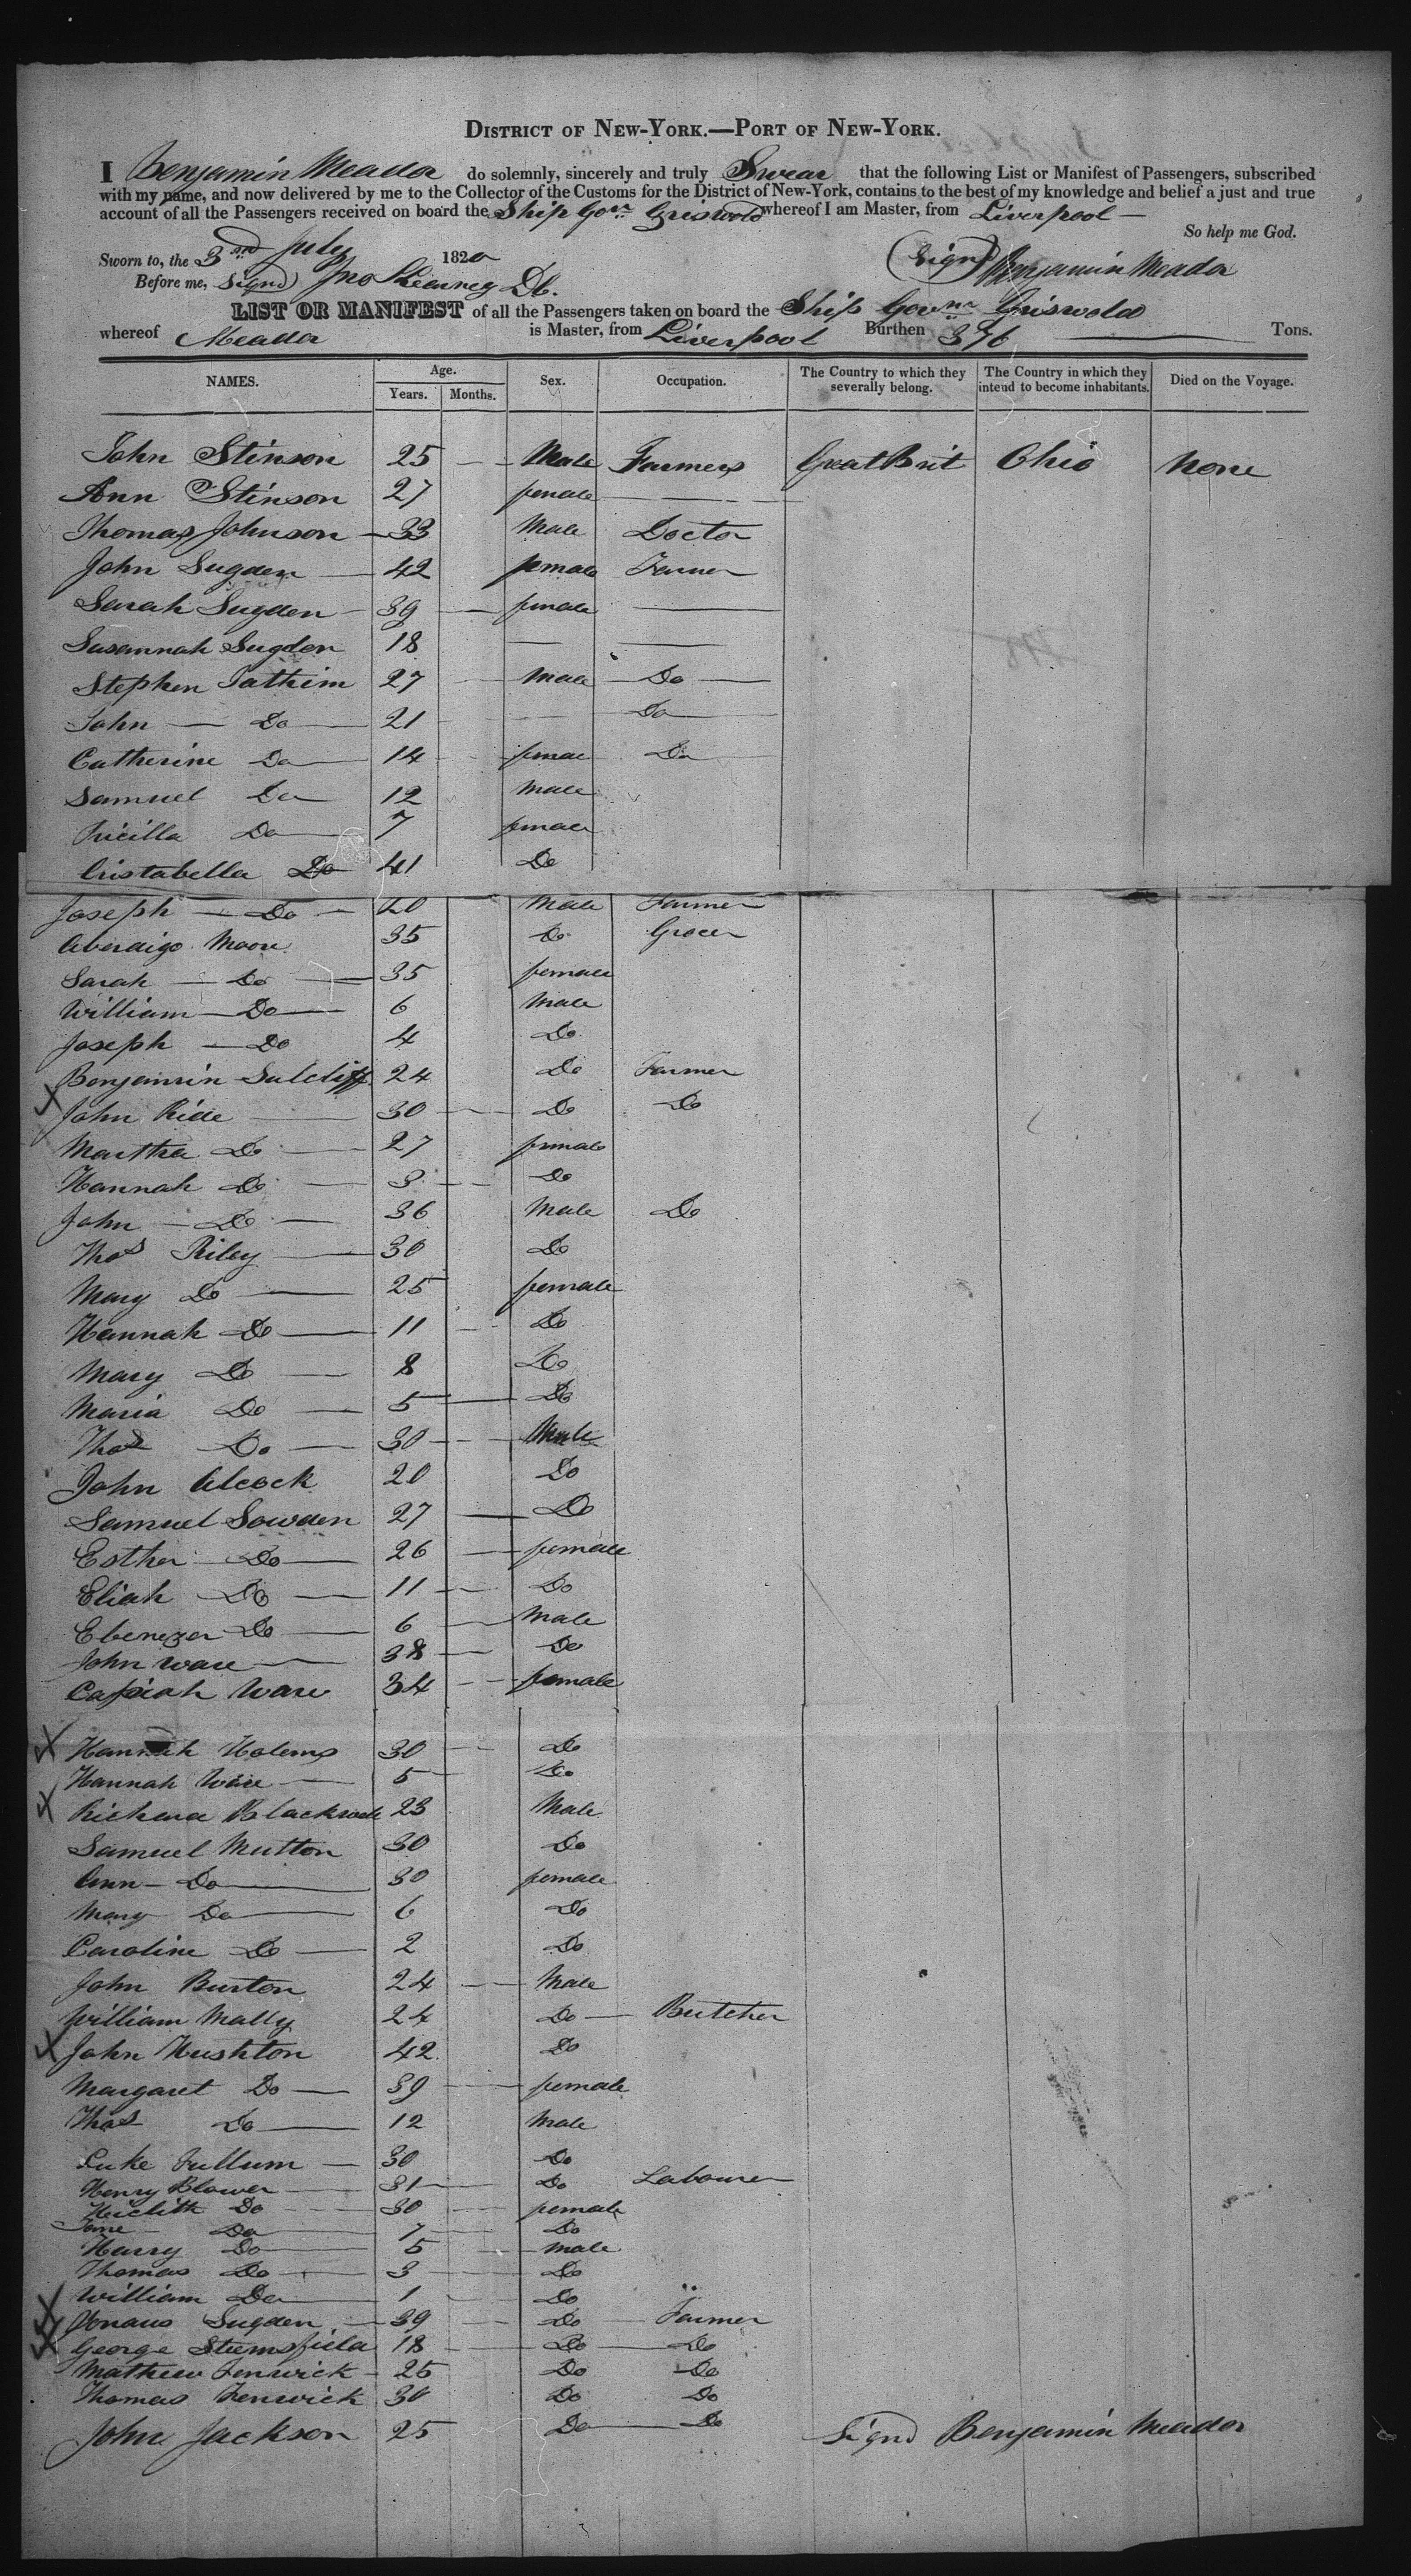 DISTRICT OF NEW-YORK.—PORT OF NEW-YORK.
I Benjamin Meador do solemnly, sincerely and truly Swear that the following List or Manifest of Passengers, subscribed
with my name, and now delivered by me to the Collector of the Customs for the District of New-York, contains to the best of my knowledge and belief a just and true
account of all the Passengers received on board the Ship Govr Griswold whereof I am Master, from Liverpool —
So help me God.
Sworn to, the 3rd July 1820 (Signd) Benjamin Meador
Before me, Signd) Jno Kearney Db.
LIST OR MANIFEST of all the Passengers taken on board the Ship Govnr Griswold
whereof Meador is Master, from Liverpool Burthen 376 Tons.
NAMES. Age. Years. Months. Sex. Occupation. The Country to which they severally belong. The Country in which they intend to become inhabitants. Died on the Voyage.
John Stinson 25 Male Farmers Great Brit Ohio None
Ann Stinson 27 female
Thomas Johnson 33 Male Doctor
John Sugden 42 female Farmer
Sarah Sugden 39 female
Susannah Sugden 18
Stephen 27 Male Do
John Do 21 Do
Catherine Do 14 femae Do
Samuel Do 12 Male
Pricilla Do 7 female
Cristabella Do 41 Do
Joseph Do 20 Male Farmer
Abendigo Moore 35 Do Grocer
Sarah Do 35 female
William Do 6 Male
Joseph Do 4 Do
Benjamin Sutcliff 24 Do Farmer
John Ride 30 Do Do
Martha Do 27 female
Hannah Do 3 Do
John Do 36 Male Do
Thos Riley 30 Do
Mary Do 25 female
Hannah Do 11 Do
Mary Do 8 Do
Maria Do 5 Do
Thos Do 30 Male
John Alcock 20 Do
Samuel Sowden 27 Do
Esther Do 26 female
Eliah Do 11 Do
Ebenezer Do 6 Male
John Ware 38 Do
Ware 34 female
Hannah Holems 30 Do
Hannah Ware 5 Do
Richard 23 Male
Samuel Mutton 30 Do
Ann Do 30 female
Mary Do 6 Do
Caroline Do 2 Do
John Burton 24 Male
William Mally 24 Do Butcher
John Hushton 42 Do
Margaret Do 39 female
Thos Do 12 Male
Luke Fullum 30 Do
Henry Blower 31 Do Labourer
Do 30 female
Jane Do 7 Do
Harry Do 5 male
Thomas Do 3 Do
William Do 1 Do
Jonaus Sugden 39 Do Farmer
George 18 Do Do
Mathew Fenwick 25 Do Do
Thomas Fenwick 30 Do Do
John Jackson 25 Do Do Signd Benjamin Meador